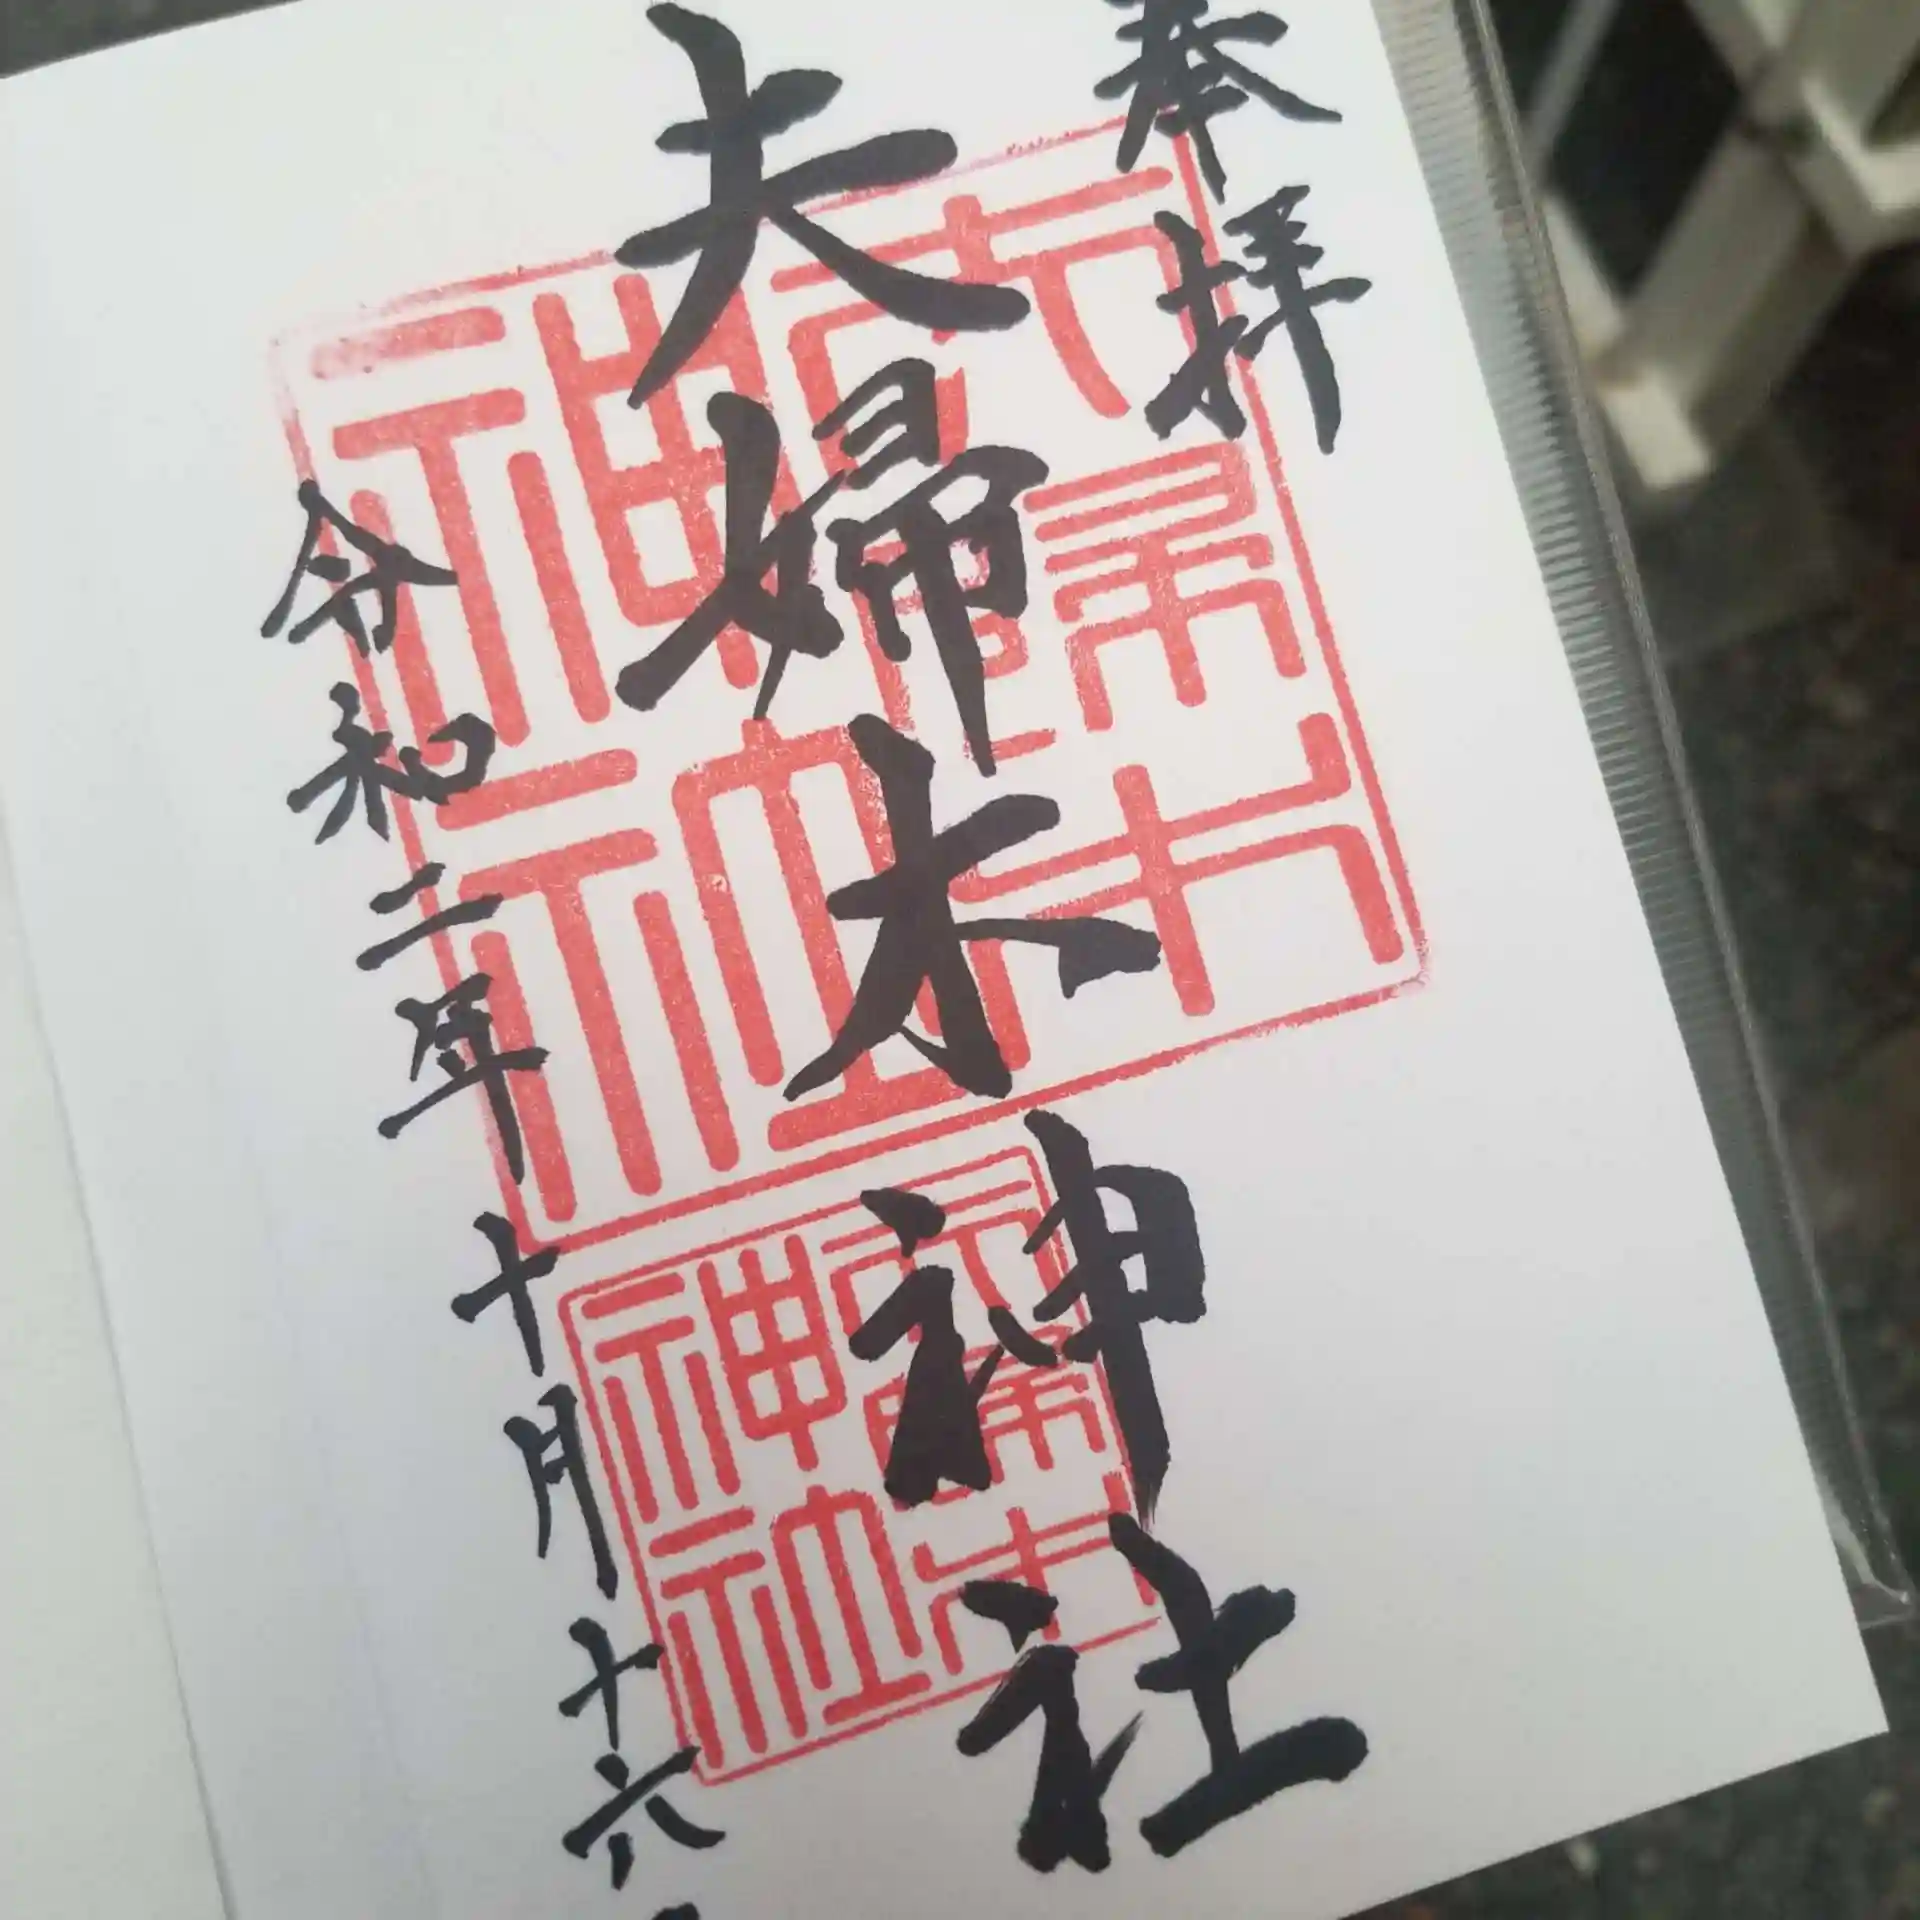 奉拝
夫婦木神社
夫婦木
神社
夫婦木
神社
令和二年十月十六